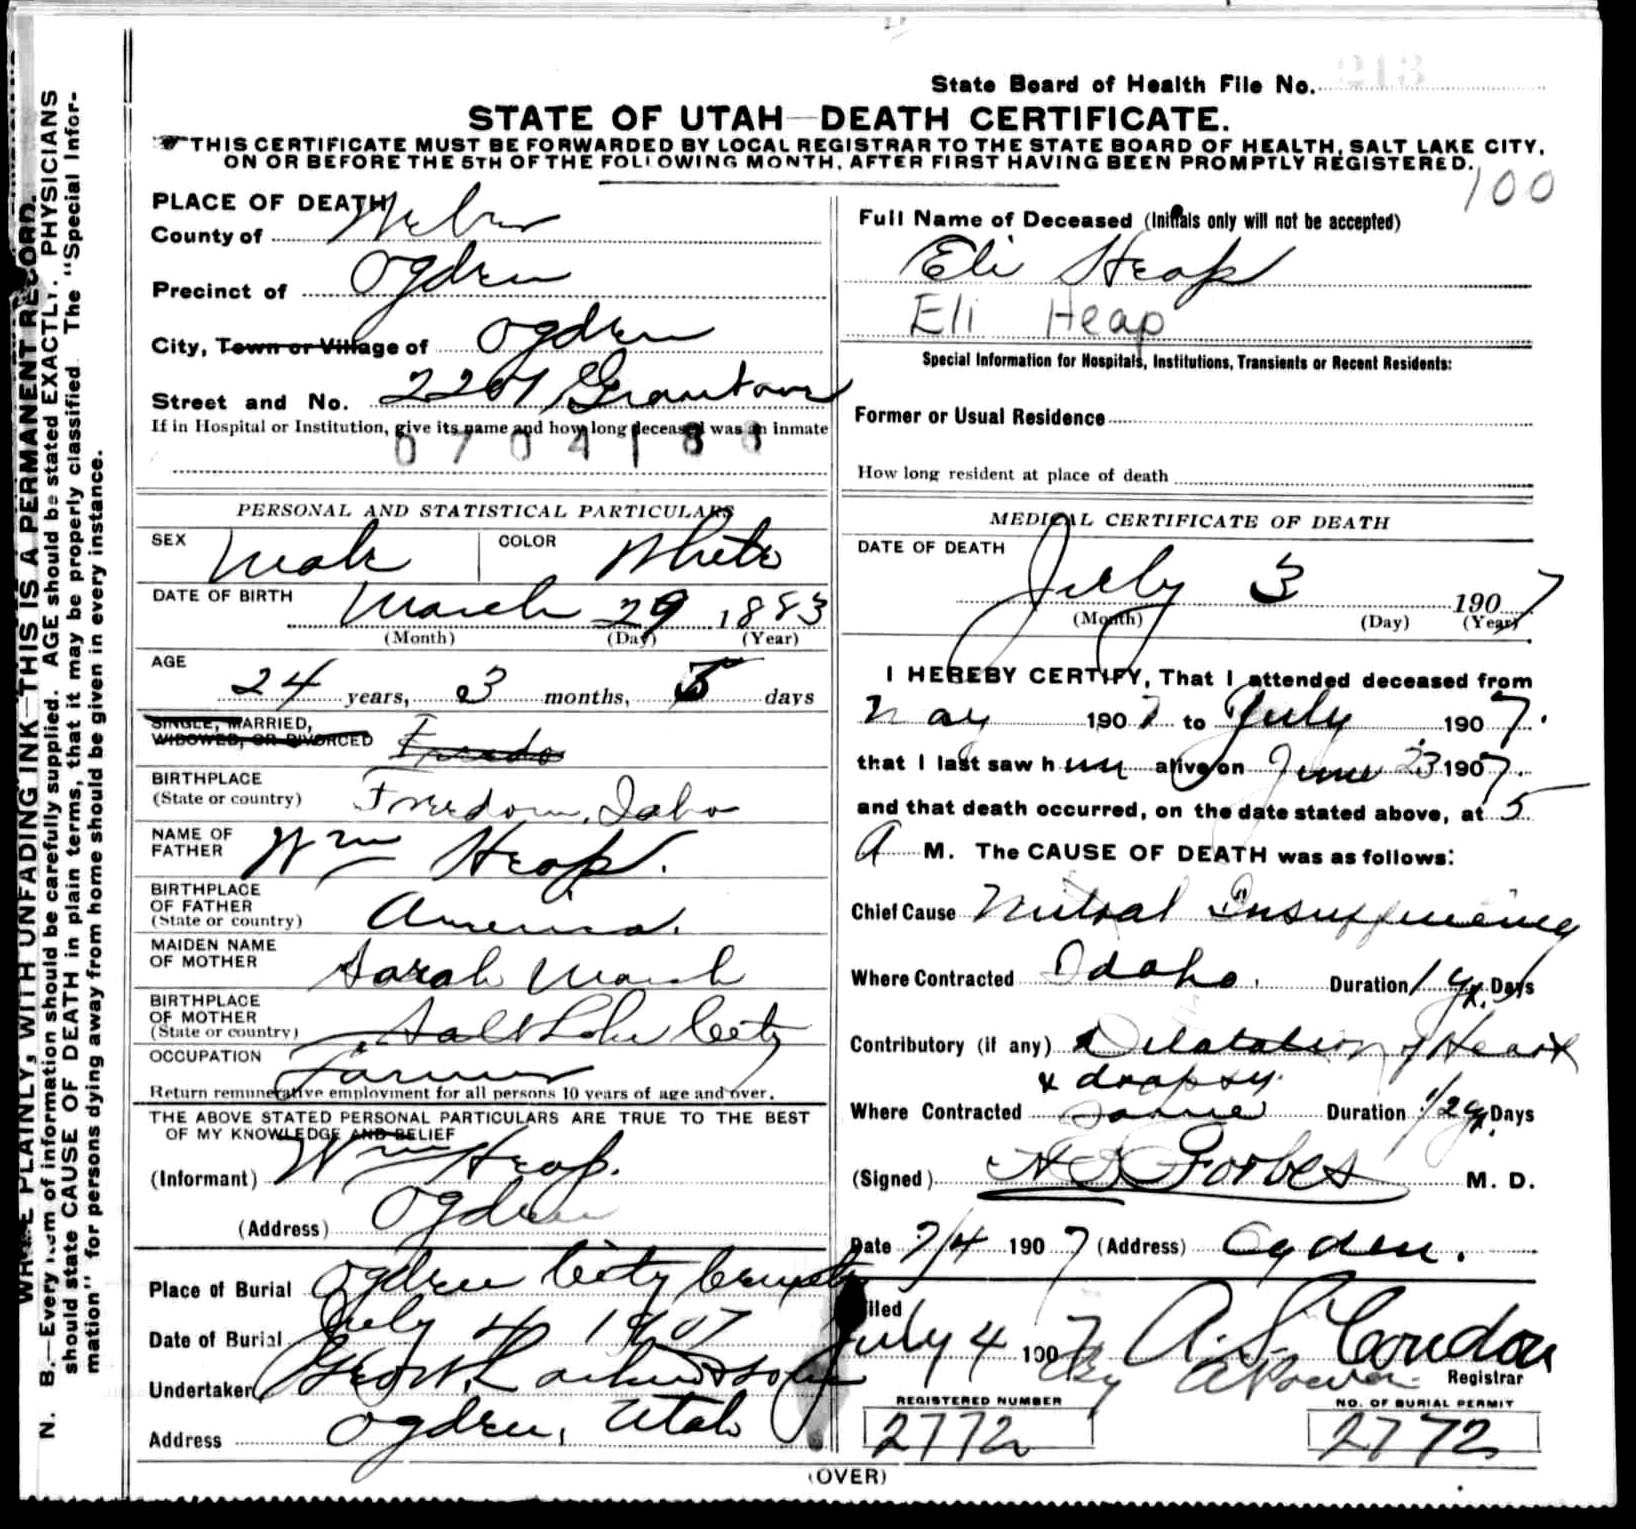 State Board of Health File No. 213
STATE OF UTAH—DEATH CERTIFICATE.
THIS CERTIFICATE MUST BE FORWARDED BY LOCAL REGISTRAR TO THE STATE BOARD OF HEALTH, SALT LAKE CITY,
ON OR BEFORE THE 5TH OF THE FOLLOWING MONTH, AFTER FIRST HAVING BEEN PROMPTLY REGISTERED.
100
WRITE PLAINLY, WITH UNFADING INK—THIS IS A PERMANENT RECORD.
N. B.—Every item of information should be carefully supplied. AGE should be stated EXACTLY. PHYSICIANS
should state CAUSE OF DEATH in plain terms, that it may be properly classified. The "Special Infor-
mation" for persons dying away from home should be given in every instance.
PLACE OF DEATH
County of Weber
Precinct of Ogden
City, Town or Village of Ogden
Street and No. 2207 Grant ave
If in Hospital or Institution, give its name and how long deceased was an inmate
PERSONAL AND STATISTICAL PARTICULARS
SEX Male COLOR White
DATE OF BIRTH March 29 1883
(Month) (Day) (Year)
AGE
24 years, 3 months, 5 days
SINGLE, MARRIED,
WIDOWED, OR DIVORCED
BIRTHPLACE
(State or country) Freedom, Idaho
NAME OF
FATHER Wm Heap.
BIRTHPLACE
OF FATHER
(State or country) America.
MAIDEN NAME
OF MOTHER Sarah Marsh
BIRTHPLACE
OF MOTHER
(State or country) Salt Lake City
OCCUPATION Farmer
Return remunerative employment for all persons 10 years of age and over.
THE ABOVE STATED PERSONAL PARTICULARS ARE TRUE TO THE BEST
OF MY KNOWLEDGE AND BELIEF
(Informant) Wm Heap.
(Address) Ogden
Place of Burial Ogden City Cemetry
Date of Burial July 4 1907
Undertaker Geo W. Larkin & Sons
Address Ogden, Utah
Full Name of Deceased (Initials only will not be accepted)
Eli Heap
Eli Heap
Special Information for Hospitals, Institutions, Transients or Recent Residents:
Former or Usual Residence
How long resident at place of death
MEDICAL CERTIFICATE OF DEATH
DATE OF DEATH
July 3 1907
(Month) (Day) (Year)
I HEREBY CERTIFY, That I attended deceased from
May 1907 to July 1907.
that I last saw h im alive on June 23 1907.
and that death occurred, on the date stated above, at 5
A M. The CAUSE OF DEATH was as follows:
Chief Cause Mitral Insufficiency
Where Contracted Idaho. Duration 1 yr. Days
Contributory (if any) Dilatation of Heart
& dropsy.
Where Contracted same Duration 1/2 yr. Days
(Signed) Forbes M. D.
Date 7/4 1907 (Address) Ogden.
Filed
July 4 1907 A. S. Condon
By Registrar
REGISTERED NUMBER NO. OF BURIAL PERMIT
2772 2772
(OVER)